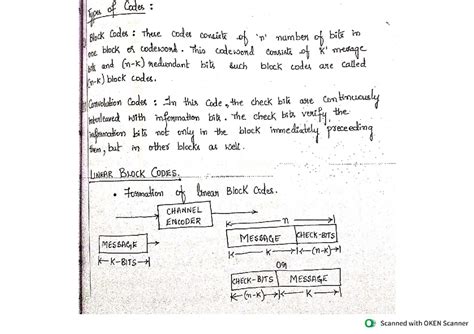 Types of Codes :
Block Codes : These codes consists of 'n' number of bits in
one block or codeword. This codeword consists of 'k' message
bits and (n-k) redundant bits such block codes are called
(n-k) block codes.
Convolation Codes : In this code, the check bits are continuously
interleaved with information bits. The check bits verify the
information bits not only in the block immediately preceeding
them, but in other blocks as well.
LINEAR BLOCK CODES.
• Formation of linear Block Codes.
CHANNEL
ENCODER
n
MESSAGE
MESSAGE
CHECK-BITS
K-BITS
K
(n-k)
OR
CHECK-BITS
MESSAGE
(n-k)
K
Scanned with OKEN Scanner